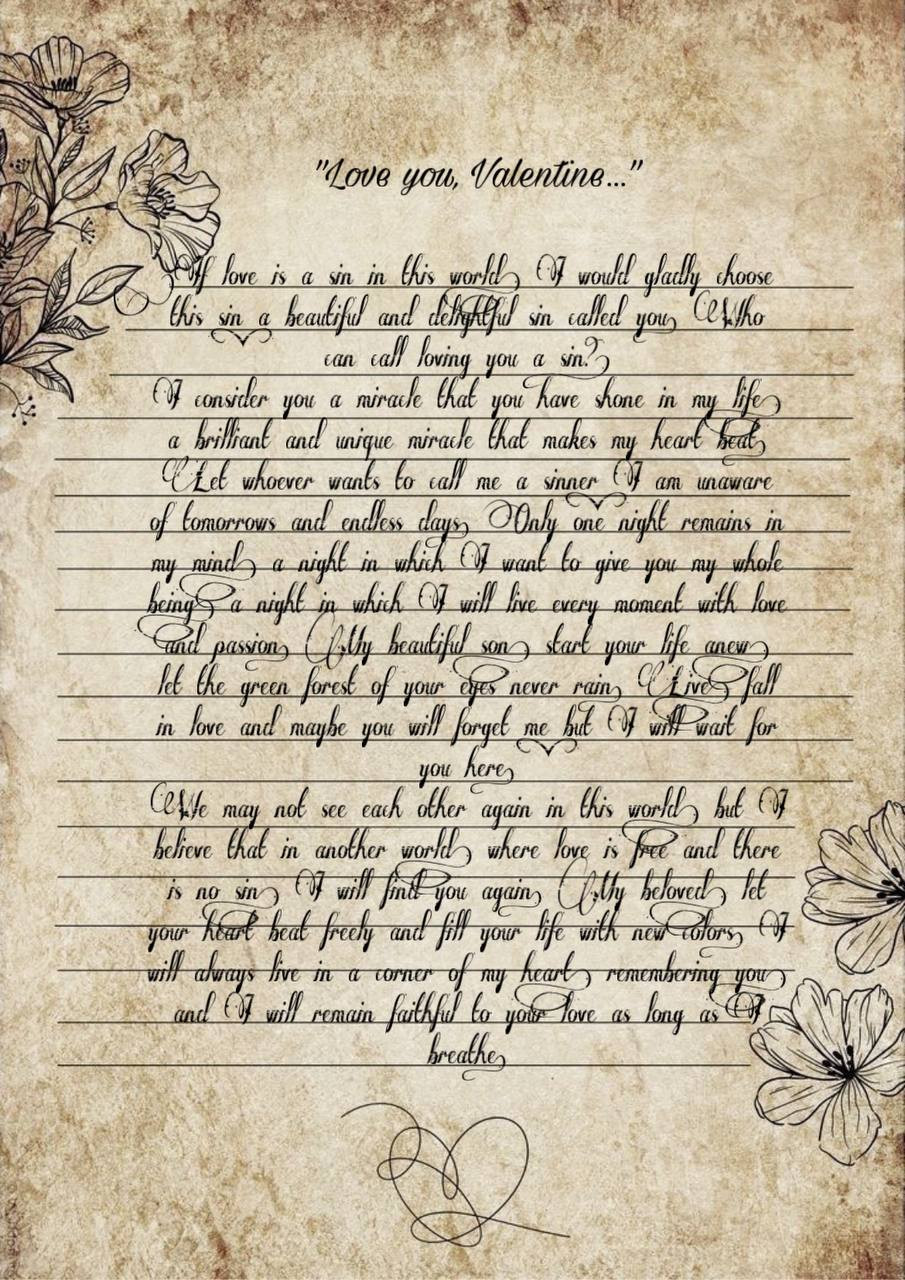 "Love you, Valentine..."
If love is a sin in this world, I would gladly choose
this sin a beautiful and delightful sin called you, Who
can call loving you a sin?
I consider you a miracle that you have shone in my life,
a brilliant and unique miracle that makes my heart beat,
Let whoever wants to call me a sinner I am unaware
of tomorrows and endless days, Only one night remains in
my mind, a night in which I want to give you my whole
being, a night in which I will live every moment with love
and passion, My beautiful son, start your life anew,
let the green forest of your eyes never rain, Live, fall
in love and maybe you will forget me but I will wait for
you here,
We may not see each other again in this world, but I
believe that in another world, where love is free and there
is no sin, I will find you again, My beloved, let
your heart beat freely and fill your life with new colors, I
will always live in a corner of my heart, remembering you,
and I will remain faithful to your love as long as I
breathe,